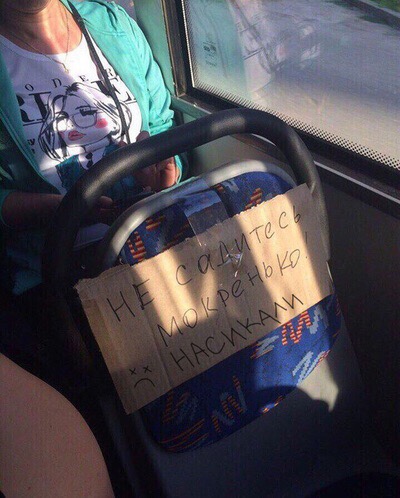 НЕ САДИТЕСЬ
МОКРЕНЬКО.
НАСИКАЛИ